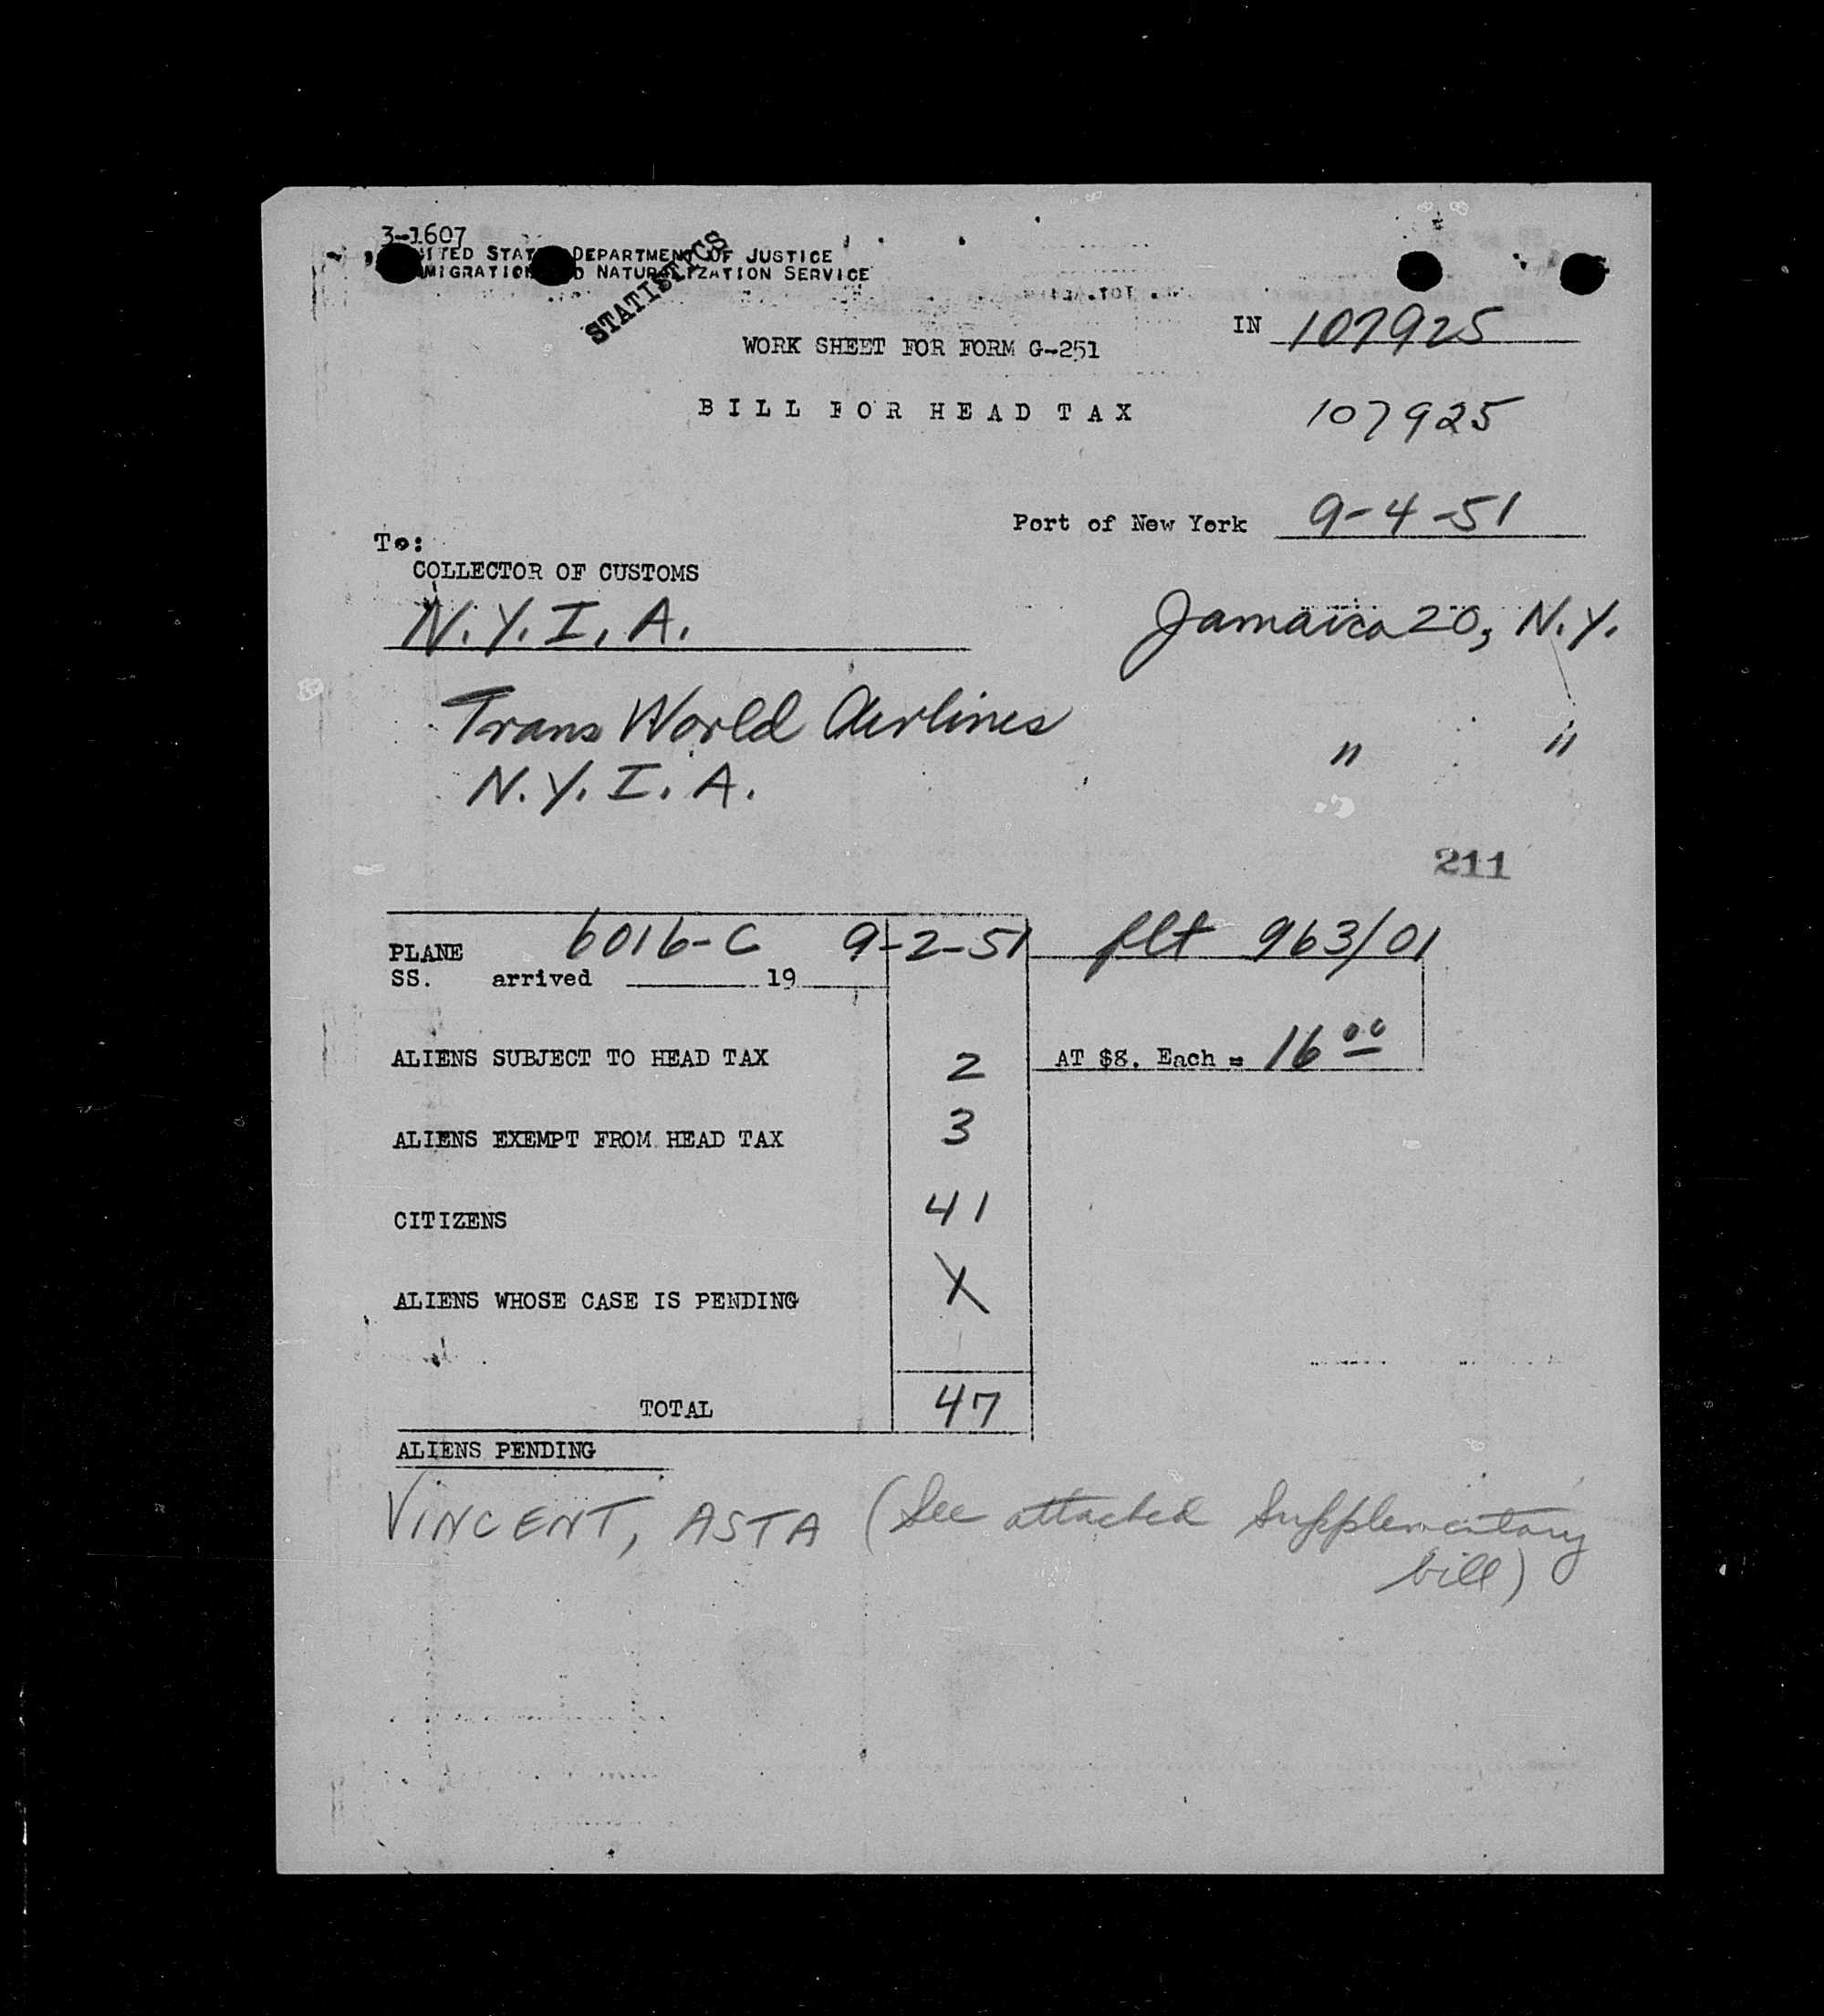 3-1607
UNITED STATES DEPARTMENT OF JUSTICE
IMMIGRATION AND NATURALIZATION SERVICE
STATISTICS
IN 107925
WORK SHEET FOR FORM G-251
BILL FOR HEAD TAX
107925
Port of New York 9-4-51
To:
COLLECTOR OF CUSTOMS
N.Y.I.A. Jamaica 20, N.Y.
Trans World Airlines " "
N.Y.I.A.
211
PLANE 6016-C 9-2-51 flt 963/01
SS. arrived 19
ALIENS SUBJECT TO HEAD TAX 2 AT $8. Each = 16 00
ALIENS EXEMPT FROM HEAD TAX 3
CITIZENS 41
ALIENS WHOSE CASE IS PENDING X
TOTAL 47
ALIENS PENDING
VINCENT, ASTA (See attached Supplementary
bill)